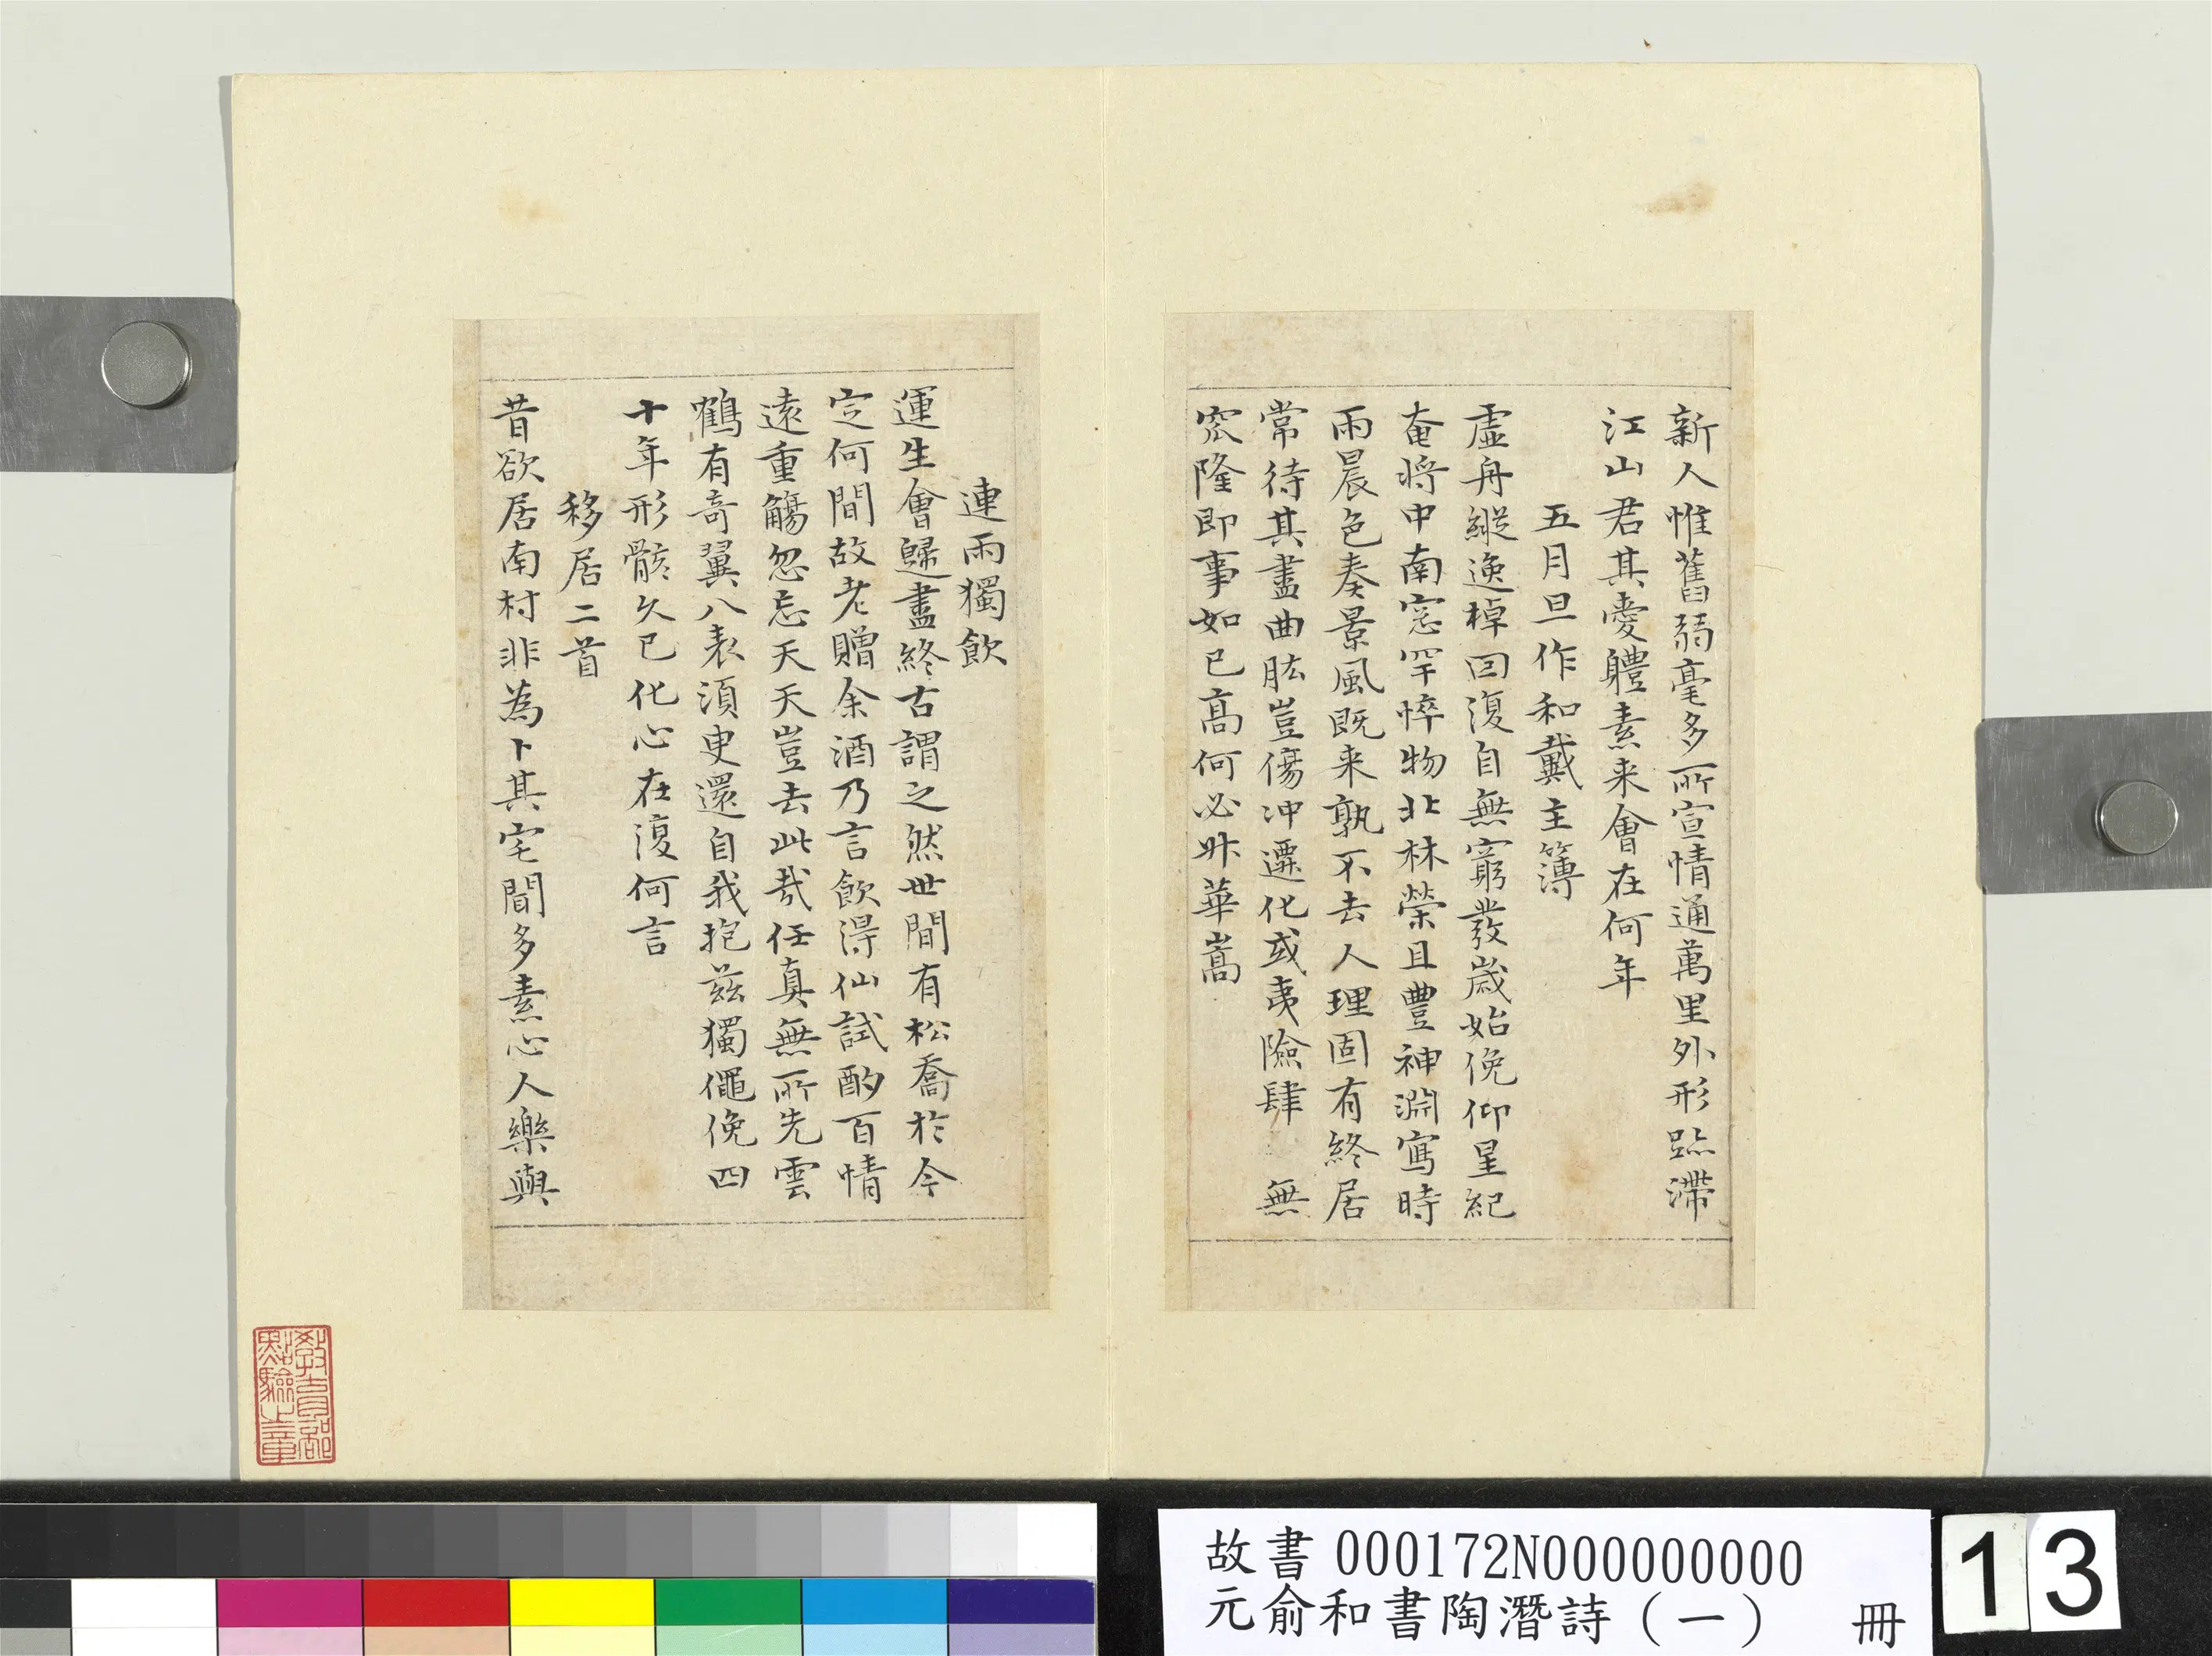 新人惟舊弱毫多所宣情通萬里外形跡滯
江山君其愛軆素来會在何年
五月旦作和戴主簿
虛舟縱逸棹回復自無窮發歲始俛仰星紀
奄將中南窓罕悴物北林榮且豐神淵寫時
雨晨色奏景風既来孰不去人理固有終居
常待其盡曲肱豈傷沖遷化或夷險肆 無
窊隆即事如已高何必升華嵩
連雨獨飲
運生會歸盡終古謂之然世間有松喬於今
定何間故老贈余酒乃言飲得仙試酌百情
遠重觴忽忘天天豈去此哉任真無所先雲
鶴有奇翼八表須臾還自我抱茲獨僶俛四
十年形骸久已化心在復何言
移居二首
昔欲居南村非為卜其宅聞多素心人樂與
教育部
點驗之章
故書 000172N000000000
元俞和書陶潛詩（一） 冊
13